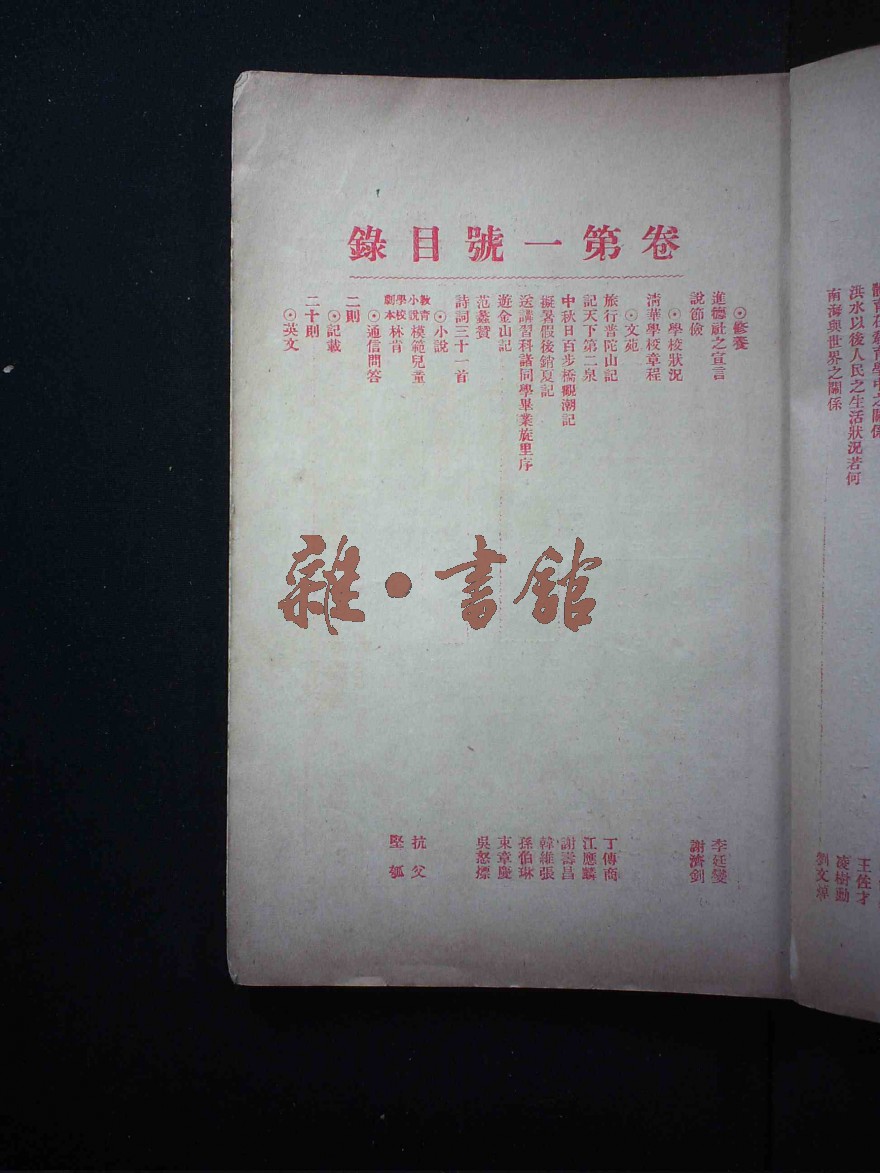 卷第一號目錄
體育在教育學中之關係
洪水以後人民之生活狀況若何
王佐才
南海與世界之關係
凌樹勳
劉文
⊙修養
進德社之宣言
李廷燮
說節儉
謝濟剑
⊙學校狀況
清華學校章程
⊙文苑
旅行普陀山記
丁傳商
記天下第二泉
江應麟
中秋日百步橋觀潮記
謝壽昌
擬暑假後銷夏記
韓維張
送講習科諸同學畢業旋里序
孫伯琳
遊金山記
束章慶
范蠡贊
吳慤熛
詩詞三十一首
⊙小說
教育小說 模範兒童
抗父
學校劇本 林肯
堅瓠
⊙通信問答
二則
⊙記載
二十則
⊙英文
雜·書館